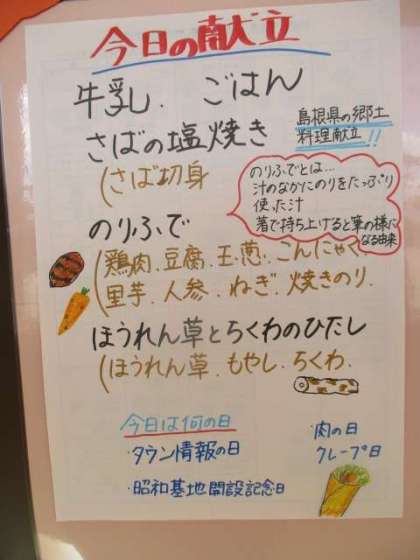 今日の献立
牛乳. ごはん
さばの塩焼き
(さば切身
島根県の郷土
料理献立!!
のりふでとは…
汁のなかにのりをたっぷり
使った汁
箸で持ち上げると筆の様に
なる由来
のりふで
(鶏肉.豆腐.玉葱.こんにゃく.
里芋.人参.ねぎ.焼きのり.
ほうれん草とちくわのひたし
(ほうれん草.もやし.ちくわ.
今日は何の日
・タウン情報の日
・昭和基地開設記念日
・肉の日
クレープ日